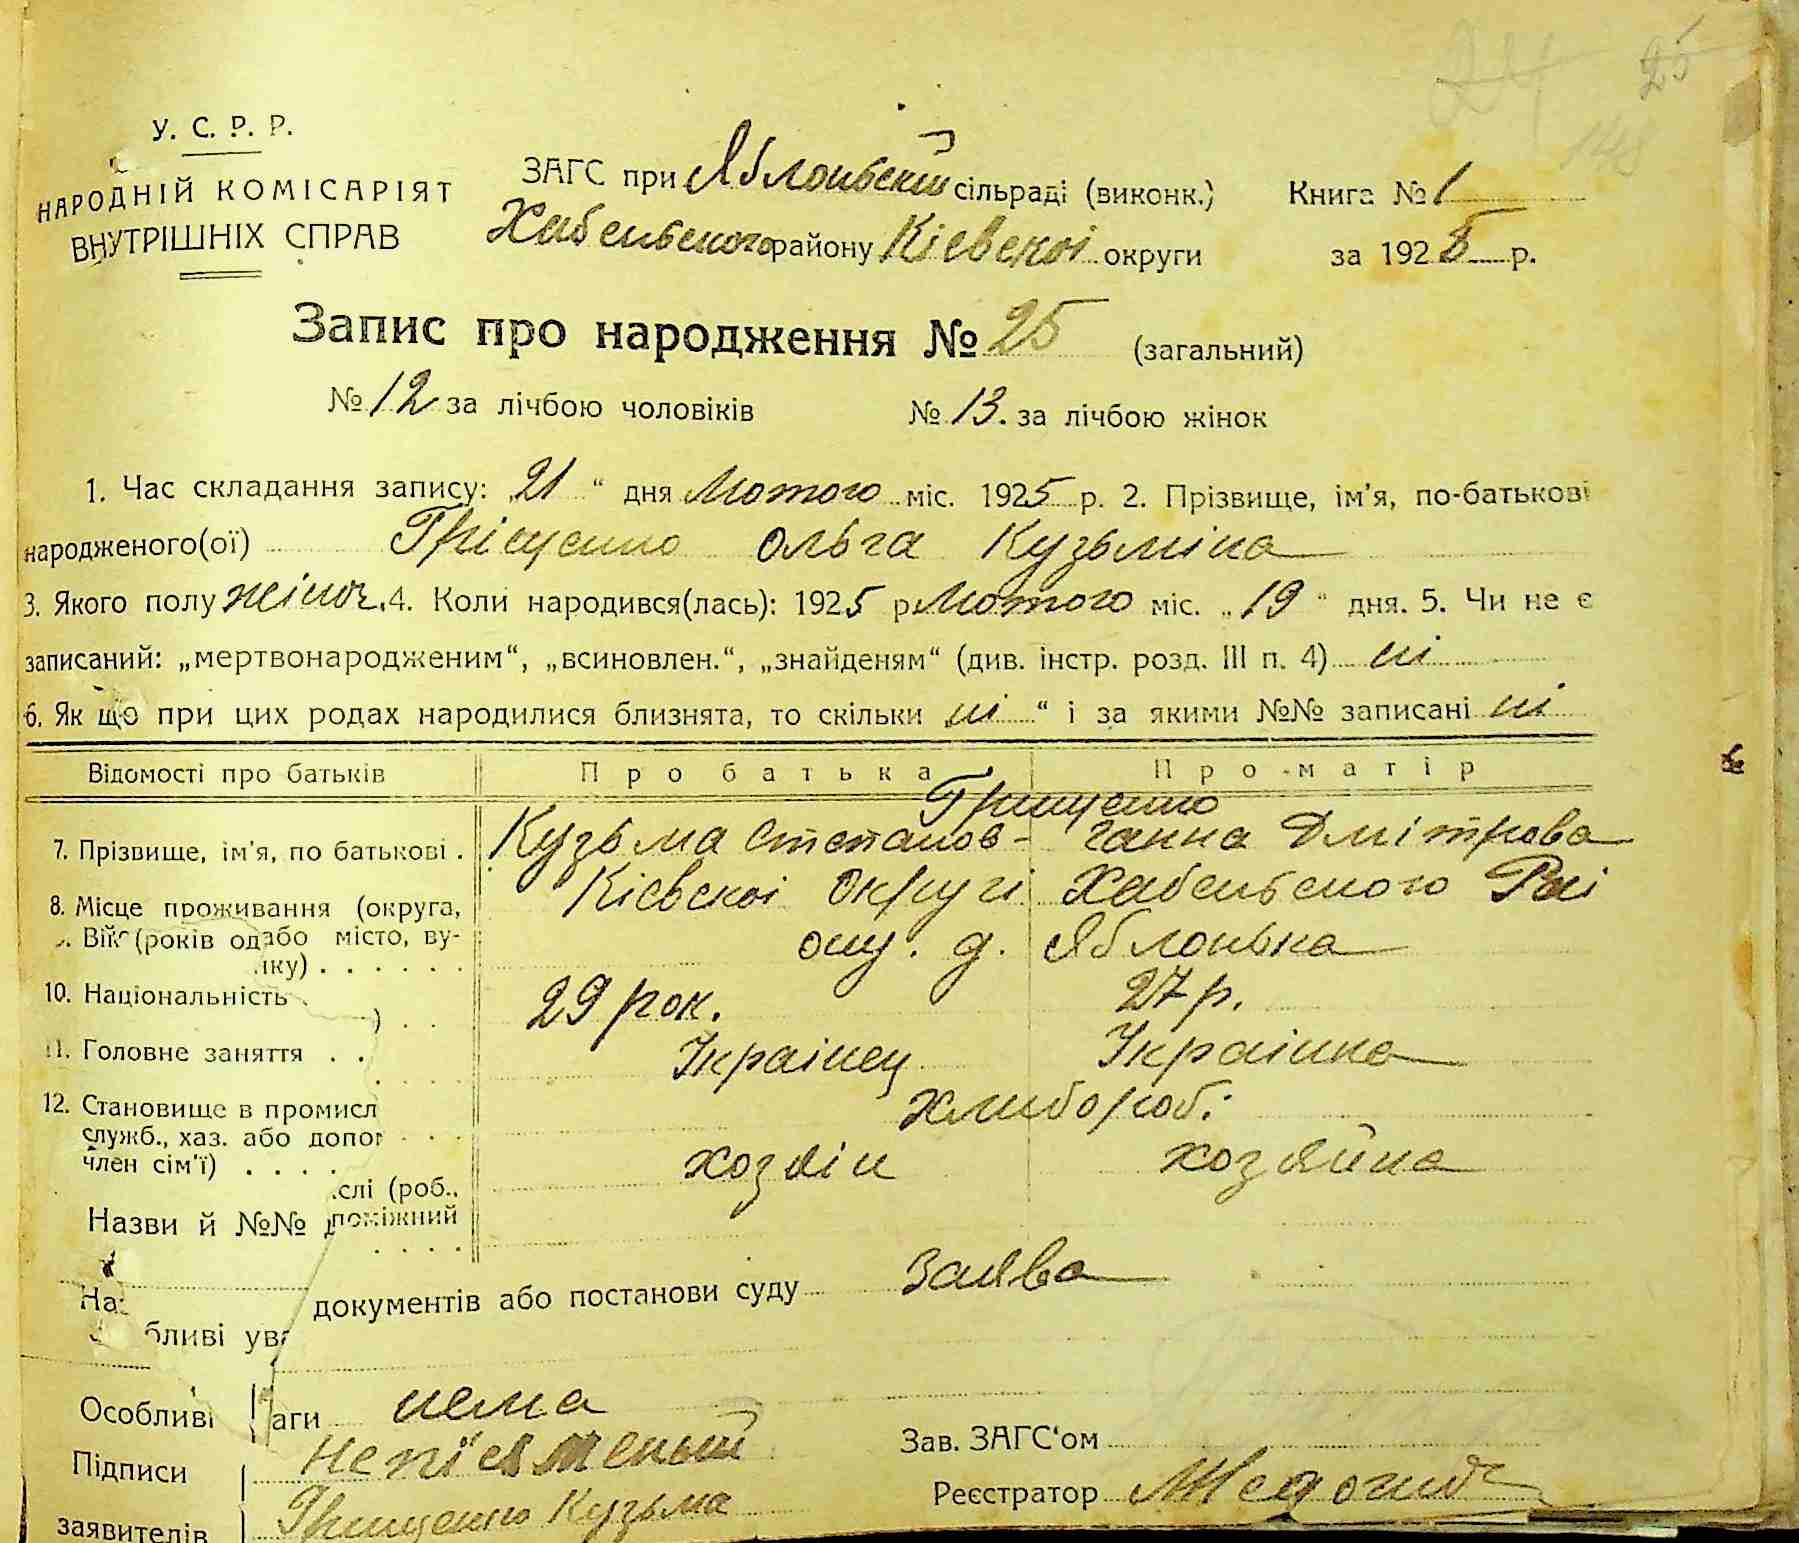 25
148
У. С. Р. Р.
НАРОДНІЙ КОМІСАРІЯТ
ВНУТРІШНІХ СПРАВ
ЗАГС при Яблоньскій сільраді (виконк.)
Хабеньского району Кіевскоі округи
Книга № 1
за 1925 р.
Запис про народження № 25 (загальний)
№ 12 за лічбою чоловіків № 13. за лічбою жінок
1. Час складання запису: „21“ дня Лютого міс. 1925 р. 2. Прізвище, ім'я, по-батькові
народженого(ої) Гріщенко Ольга Кузьміна
3. Якого полу жіноч. 4. Коли народився(лась): 1925 р Лютого міс. „19“ дня. 5. Чи не є
записаний: „мертвонародженим“, „всиновлен.“, „знайденям“ (див. інстр. розд. III п. 4) ні
6. Як що при цих родах народилися близнята, то скільки „ні“ і за якими №№ записані ні
Відомості про батьків Про батька Про матір
Грищенко
7. Прізвище, ім'я, по батькові . Кузьма Степанов- Ганна Дмітрова
8. Місце проживання (округа, Кіевскоі Округі Хабеньского Рай
Вік (років од або місто, ву- ону. д. Яблонька
ику) . . . . . .
10. Національність 29 рок. 27 р.
) . .
11. Головне заняття . . Украінец Украінка
12. Становище в промисл хлибороб.
служб., хаз. або допог
член сім'ї) . . . . хозяін хозяйка
слі (роб.,
Назви й №№ поміжний
На документів або постанови суду Заява
бливі ува
Особливі ваги нема
Підписи Непісьменый Зав. ЗАГС'ом
заявителів Грищенко Кузьма Реєстратор